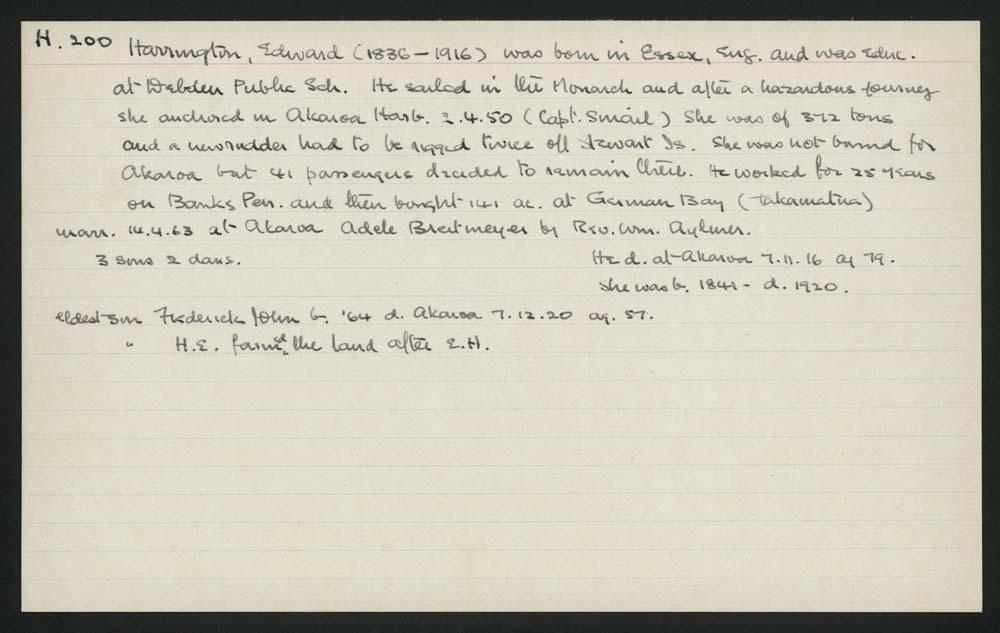 H. 200 Harrington, Edward (1836 – 1916) was born in Essex, Eng. and was educ.
at Debden Public Sch. He sailed in the Monarch and after a hazardous journey
she anchored in Akaroa Harb. 2.4.50 (Capt. Smail) She was of 372 tons
and a new rudder had to be rigged twice off Stewart Is. She was not bound for
Akaroa but 41 passengers decided to remain there. He worked for 25 years
on Banks Pen. and then bought 141 ac. at German Bay (Takamatua)
marr. 14.4.63 at Akaroa Adele Breitmeyer by Rev. Wm. Aylmer.
3 sons 2 daus. He d. at Akaroa 7.11.16 ag 79.
She was b. 1841 - d. 1920.
eldest son Frederick John b. '64 d. Akaroa 7.12.20 ag. 57.
" H.E. farmed the land after E.H.